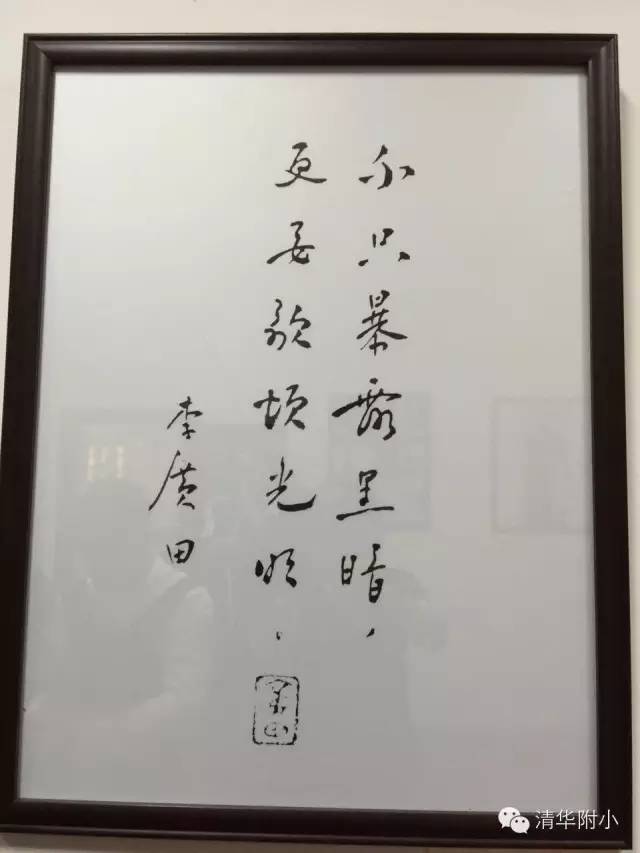 不只暴露黑暗，
更要歌颂光明。
李廣田
清华附小